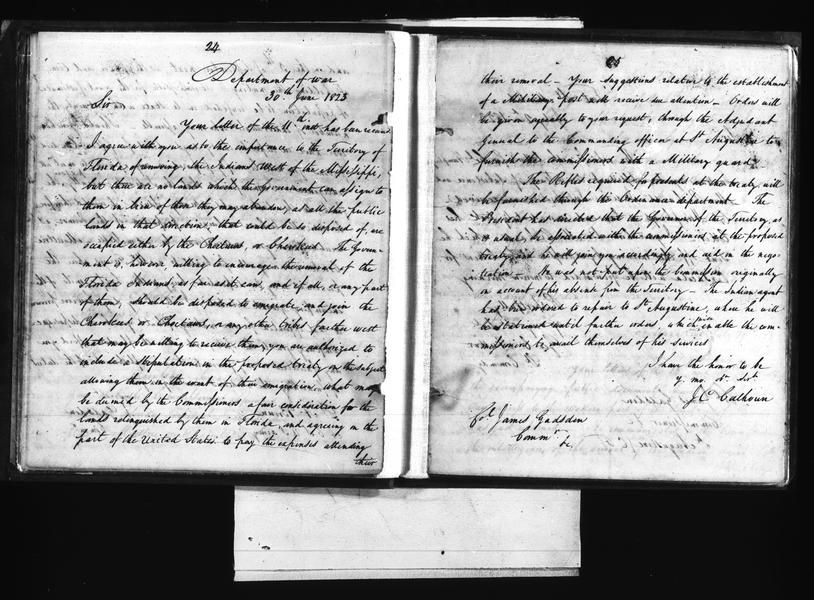 24
Department of war
30th June 1823
Sir
Your letter of the 11th inst has been received
I agree with you as to the importance to the Territory of
Florida of removing the Indians West of the Mississippi,
but there are no lands which the government can assign to
them in lieu of those they may abandon, as all the public
lands in that direction that could be so disposed of, are
occupied either by the Choctaws, or Cherokees The Govern-
ment is, however, willing to encourage the removal of the
Florida Indians, as far as it can, and if all, or any part
of them, should be disposed to emigrate and join the
Cherokees or Choctaws, or any other tribes further west
that may be willing to receive them, you are authorized to
include a stipulation in the proposed treaty on the subject
allowing them in the event of their emigration, what may
be deemed by the Commissioners a fair consideration for the
lands relinquished by them in Florida and agreeing on the
part of the United States to pay the expenses attending
their
25
their removal – Your suggestions relative to the establishment
of a Military post will receive due attention – Orders will
be given agreeably to your request, through the Adjutant
General to the Commanding officer at St Augustine to
furnish the commissioners with a Military guard
The Rifles required for presents at the treaty will
be furnished through the Ordnance department The
President has directed that the Governor of the Territory, as
is usual, be associated with the commissioners at the proposed
treaty, and he will join you accordingly and aid in the nego-
tiation He was not put upon the Commission originally
on account of his absence from the Territory – The Indian agent
has been ordered to repair to St Augustine, where he will
be stationed until further orders, which will enable the com-
missioners to avail themselves of his services
I have the honor to be
y. mo. ob. Sert
J C Calhoun
Col James Gadsden
Commr &c